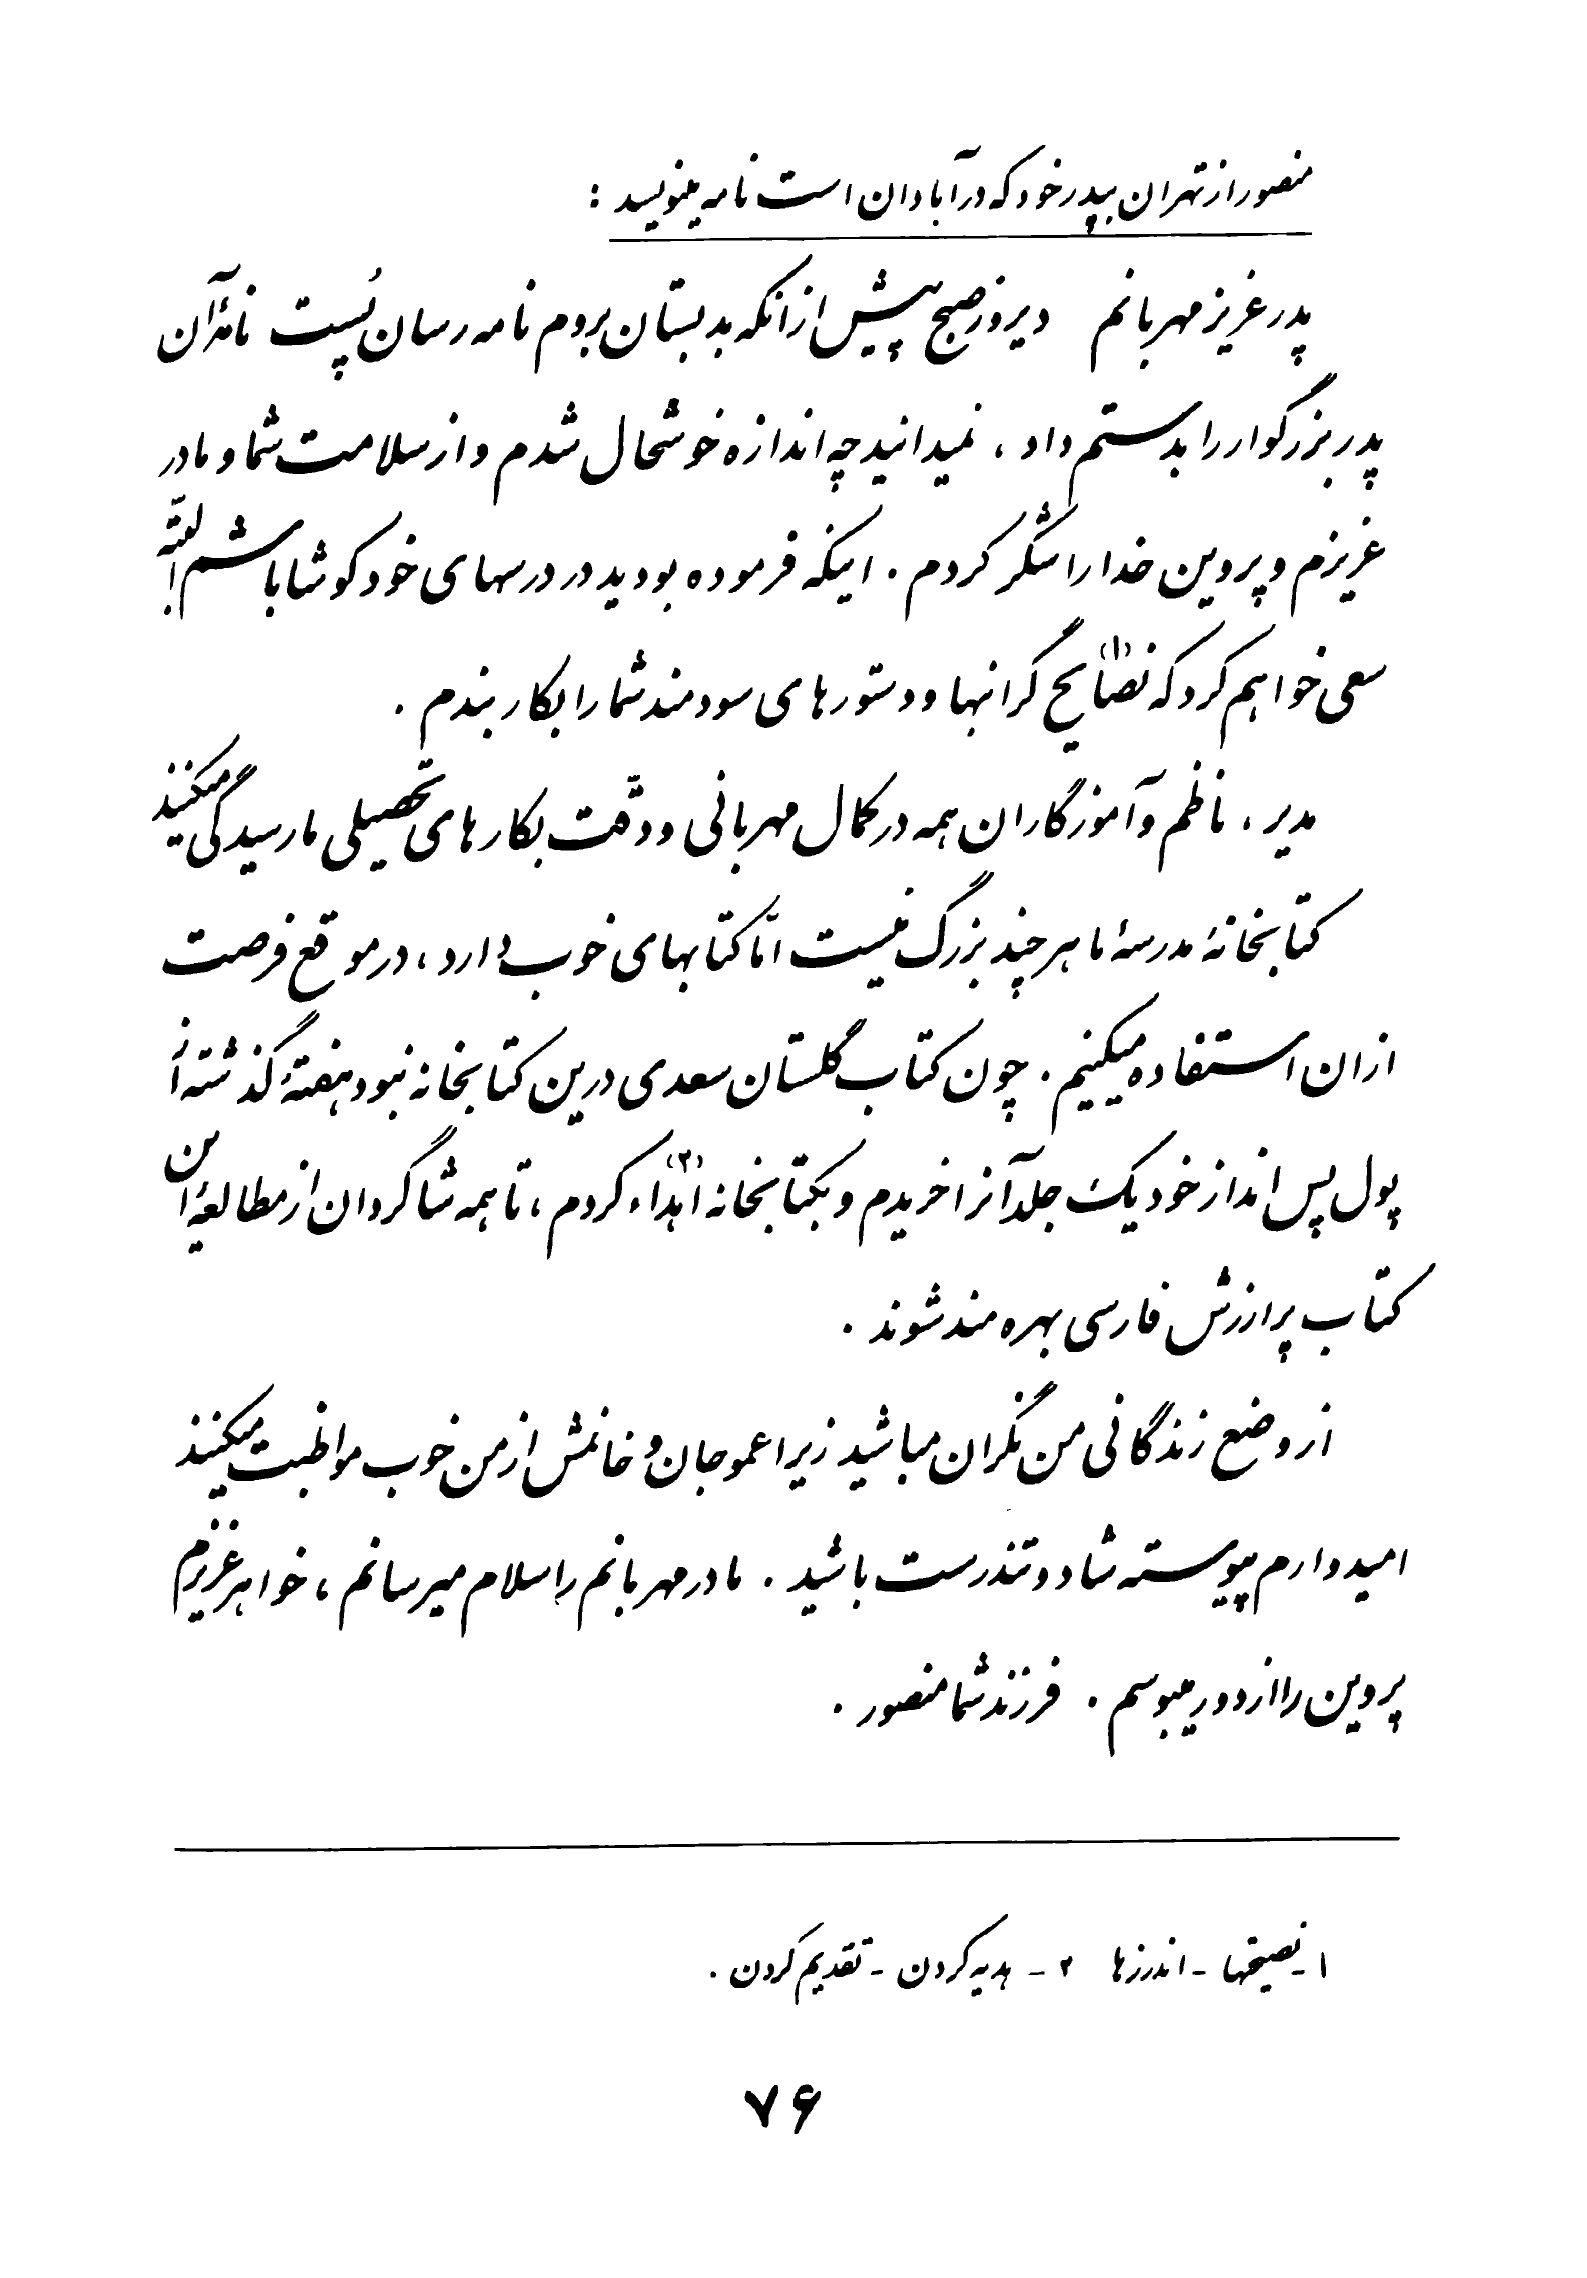 منصور از تهران بپدر خود که در آبادان است نامه مینویسد :
پدر عزیز مهربانم دیروز صبح پیش از انکه بدبستان بروم نامه رسان پُست نامهٔ آن
پدر بزرگوار را بدستم داد ، نمیدانید چه اندازه خوشحال شدم و از سلامت شما و مادر
عزیزم و پروین خدا را شکر کردم . اینکه فرموده بودید در درسهای خود کوشا باشم البتّه
سعی خواهم کرد که نصایح(۱) گرانبها و دستورهای سودمند شما را بکار بندم .
مدیر ، ناظم و آموزگاران همه در کمال مهربانی و دقّت بکارهای تحصیلی ما رسیدگی میکنند
کتابخانهٔ مدرسهٔ ما هر چند بزرگ نیست امّا کتابهای خوب دارد ، در موقع فرصت
ازان استفاده میکنیم . چون کتاب گلستان سعدی درین کتابخانه نبود هفتهٔ گذشته از
پول پس انداز خود یک جلد آنرا خریدم و بکتابخانه اهداء(۲) کردم ، تا همه شاگردان از مطالعهٔ این
کتاب پر ارزش فارسی بهره مند شوند .
از وضع زندگانی من نگران مباشید زیرا عمو جان و خانمش از من خوب مواظبت میکنند
امیدوارم پیوسته شاد و تندرست باشید . مادر مهربانم را سلام میرسانم ، خواهر عزیزم
پروین را از دور میبوسم . فرزند شما منصور .
۱ - نصیحتها - اندرزها ۲ - هدیه کردن - تقدیم کردن .
۷۶